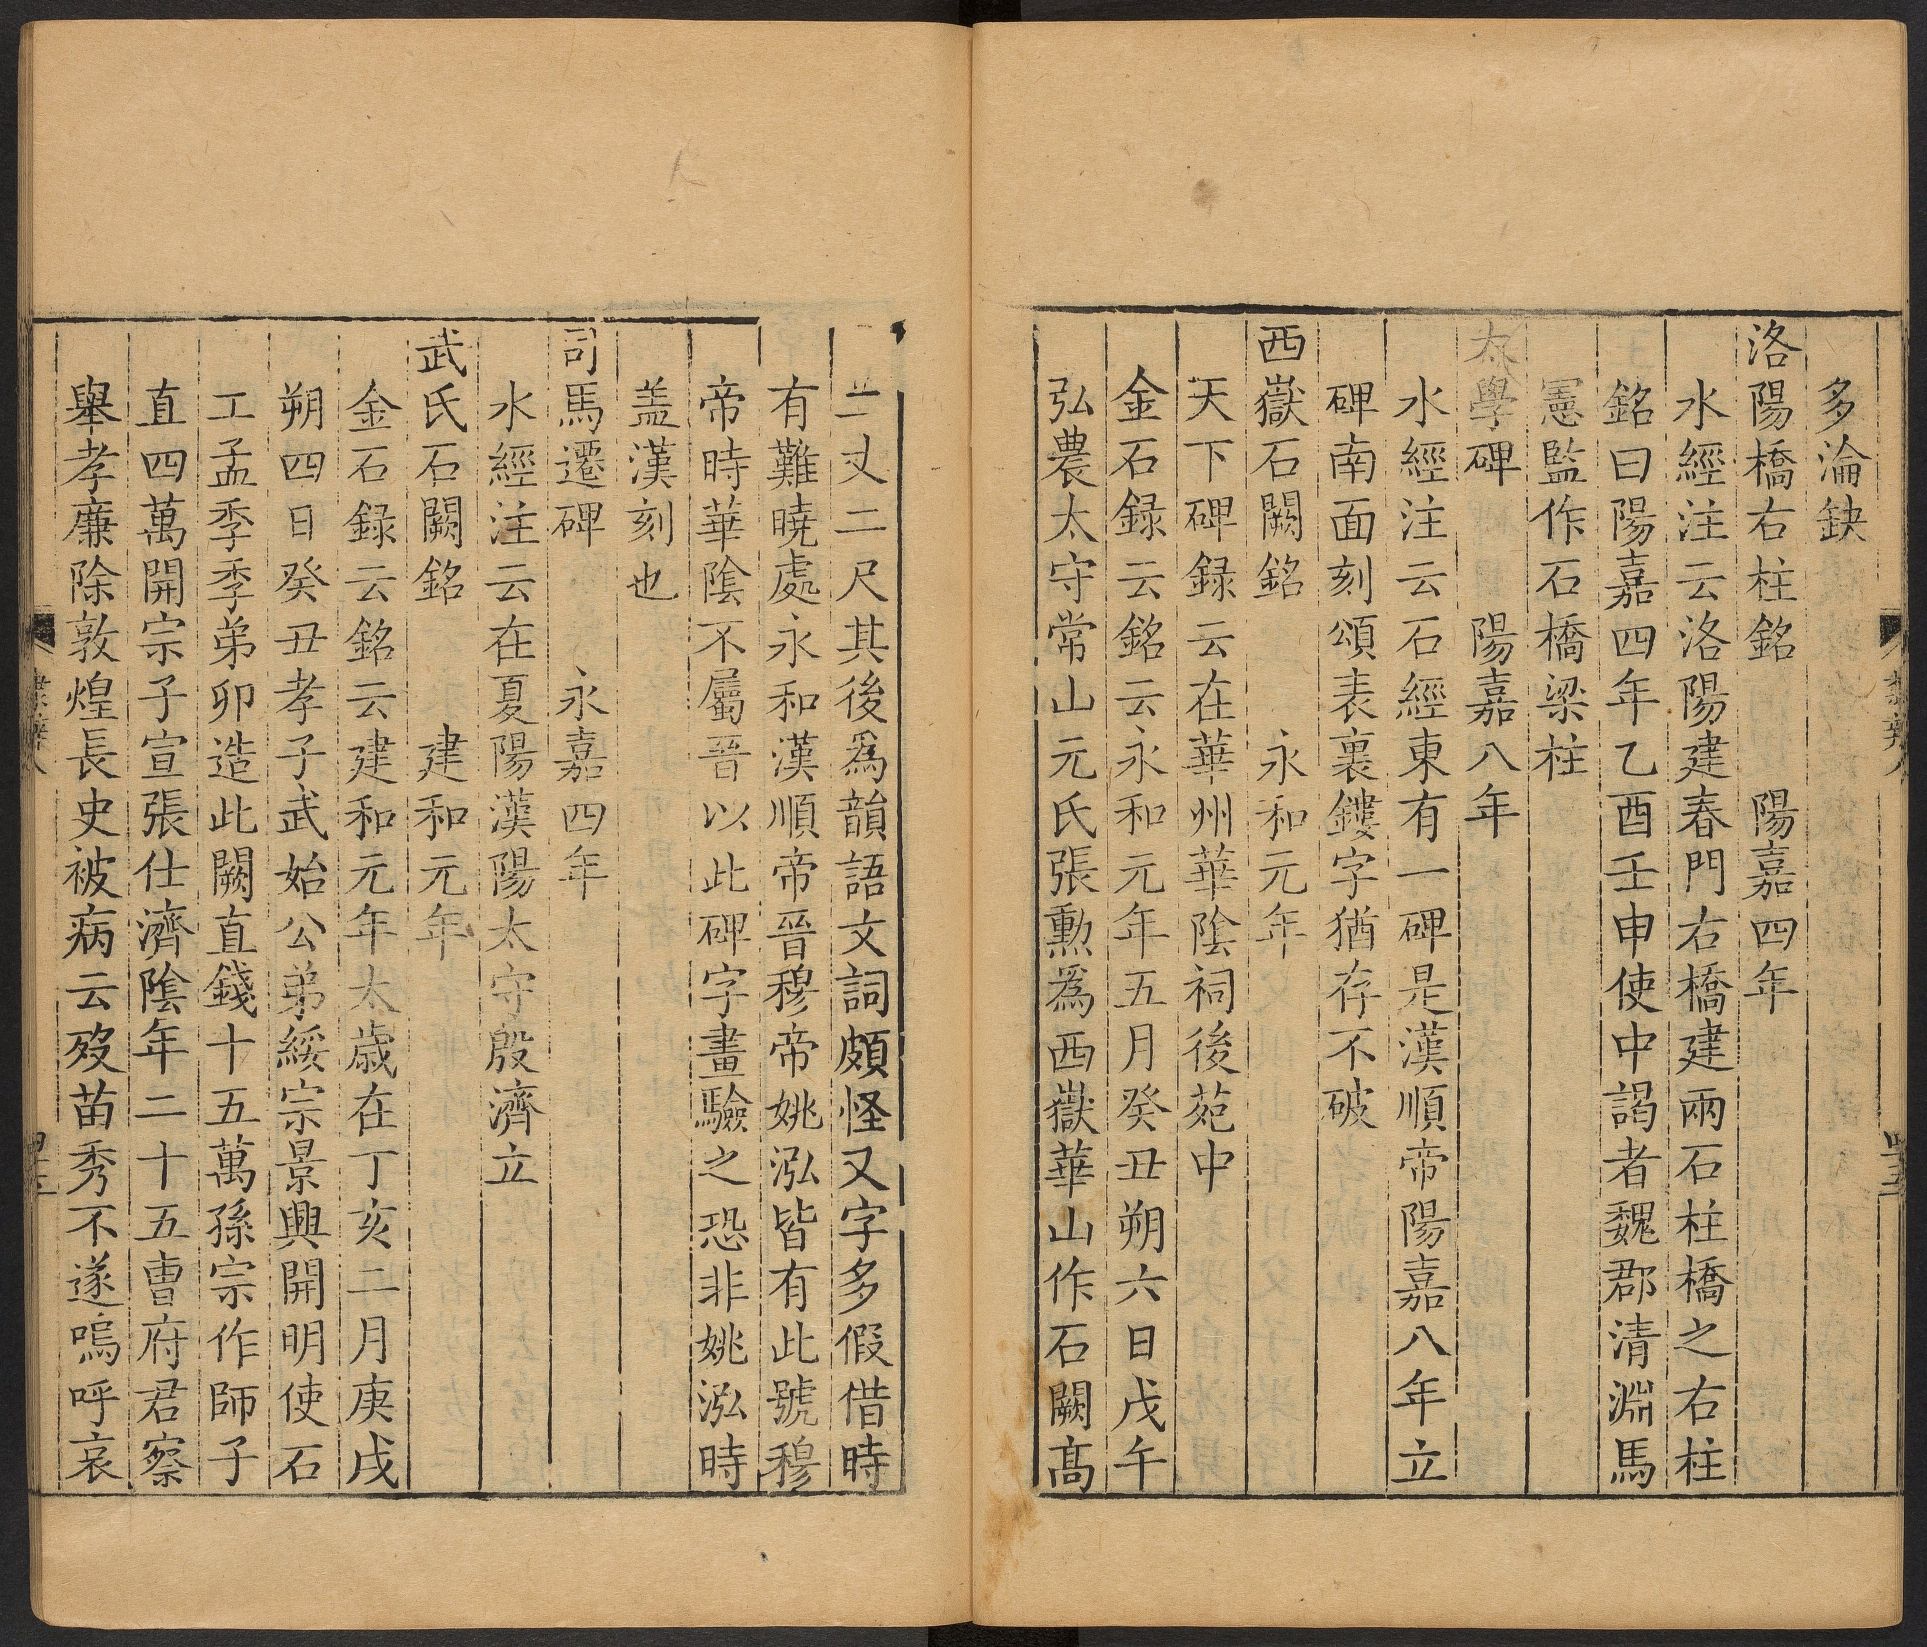 多淪缺
洛陽橋右柱銘 陽嘉四年
水經注云洛陽建春門右橋建兩石柱橋之右柱
銘曰陽嘉四年乙酉壬申使中謁者魏郡清淵馬
憲監作石橋梁柱
太學碑 陽嘉八年
水經注云石經東有一碑是漢順帝陽嘉八年立
碑南面刻頌表裏鏤字猶存不破
西嶽石闕銘 永和元年
天下碑録云在華州華陰祠後苑中
金石録云銘云永和元年五月癸丑朔六日戊午
弘農太守常山元氏張勲爲西嶽華山作石闕髙
丈二尺其後爲韻語文詞頗怪又字多假借時
有難曉處永和漢順帝晉穆帝姚泓皆有此號穆
帝時華陰不屬晉以此碑字畫驗之恐非姚泓時
盖漢刻也
司馬遷碑 永嘉四年
水經注云在夏陽漢陽太守殷濟立
武氏石闕銘 建和元年
金石録云銘云建和元年太歲在丁亥二月庚戌
朔四日癸丑孝子武始公弟綏宗景興開明使石
工孟季季弟卯造此闕直錢十五萬孫宗作師子
直四萬開宗子宣張仕濟陰年二十五曹府君察
舉孝廉除敦煌長史被病云歿苗秀不遂嗚呼哀